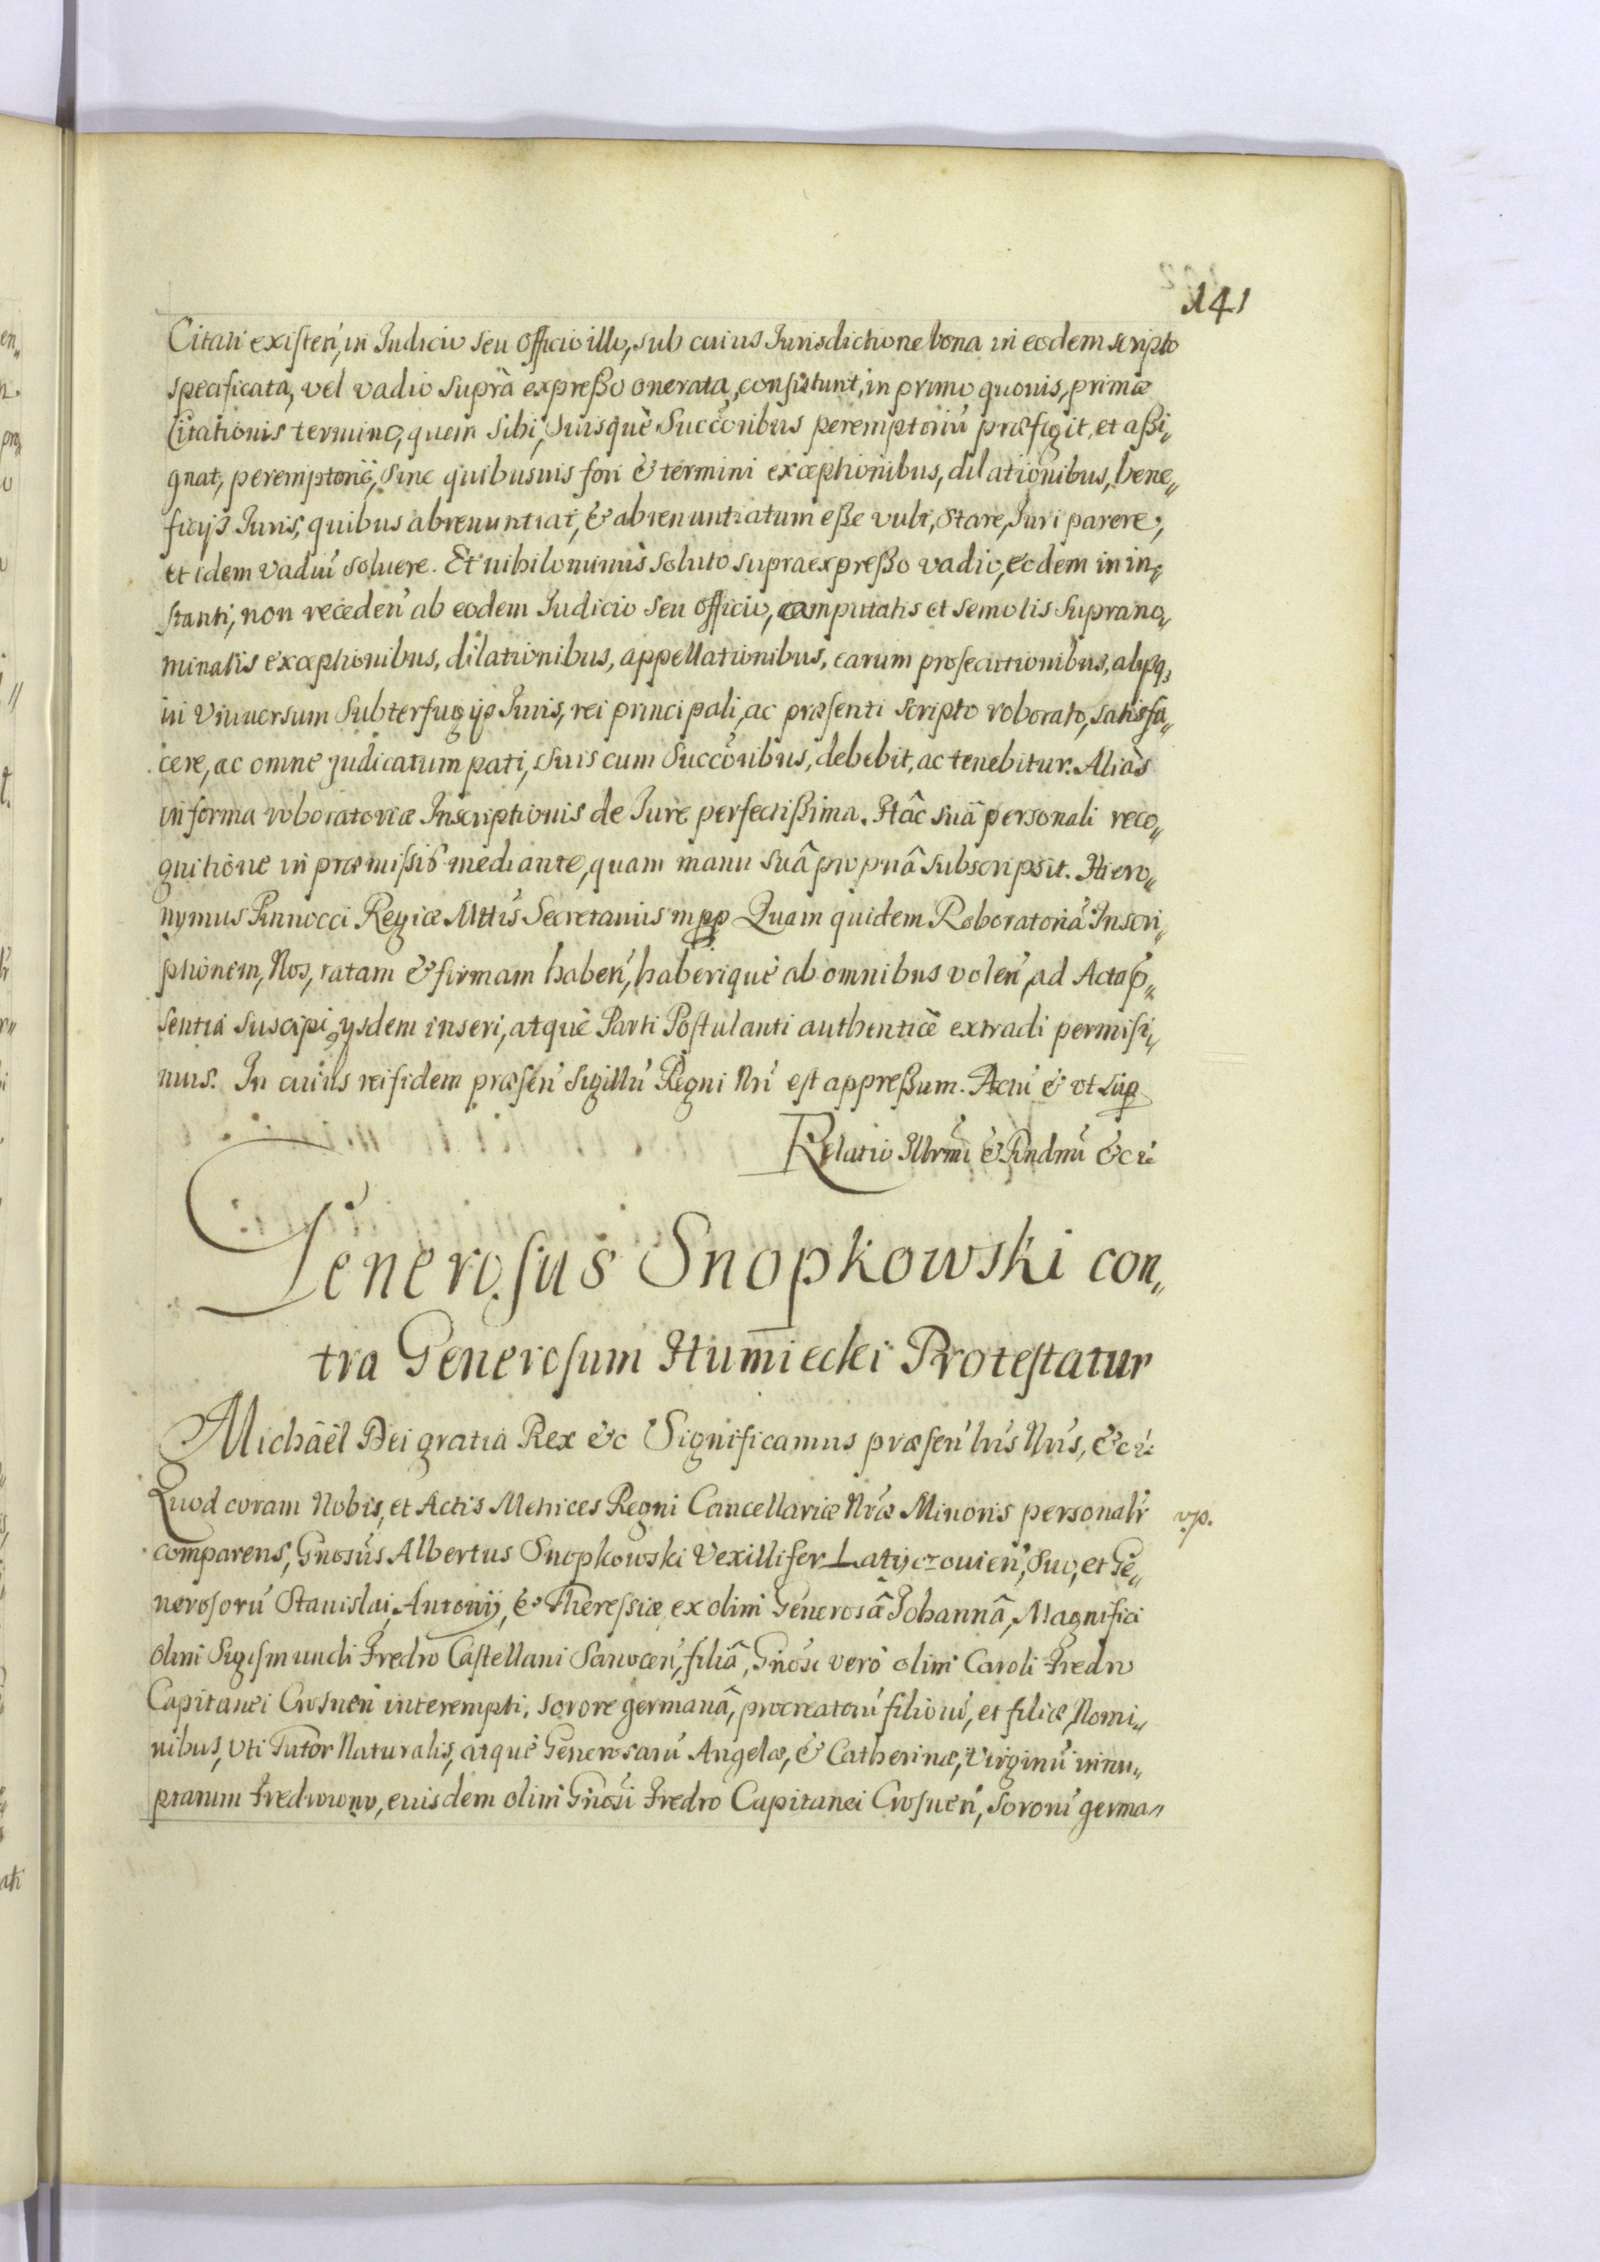 141
Citati existeń, in Judicio seu officio illo, sub cuius Jurisdictione bona in eodem scripto
specificata, vel vadio suprà expresso onerata, consistunt, in primo quouis, primæ
Citationis termino, quem sibi, suisquè Succõribus peremptoriũ præfigit, et assi„
gnat, peremptoriè, sine quibusuis fori & termini exceptionibus, dilationibus, bene„
ficijs Juris, quibus abrenuntiat, & abrenuntiatum esse vult, stare, Juri parere,
et idem vadiũ soluere. Et nihilominùs soluto supraexpresso vadio, eodem in in„
stanti, non recedeń ab eodem Judicio seu officio, amputatis et semotis supranno„
minatis exceptionibus, dilationibus, appellationibus, earum prosecutionibus, alijsq,
in vniuersum subterfugijs Juris, rei principali, ac præsenti scripto roborato, satisfa„
cere, ac omne judicatum pati, suis cum Succõribus, debebit, ac tenebitur. Aliàs
in forma roboratoriæ Inscriptionis de Jure perfectissima. Hâc suâ personali reco„
gnitione in præmissis mediante, quam manu suâ propriâ subscripsit. Hiero„
nymus Pinnocci Regiæ Mttis Secretarius mpp Quam quidem Roboratoriã Inscri„
ptionem, Nos, ratam & firmam habeń, haberiquè ab omnibus voleń, ad Acta p„
sentia suscipi, ijsdem inseri, atquè Parti Postulanti authenticè extradi permisi„
mus. In cuius rei fidem præseń Sigillũ Regni Nri est appressum. Actũ & vt sup
Relatio Illrmi & Rndmi &c ů
Generosus Snopkowski con„
tra Generosum Humiecki Protestatur
Michâël Dei gratia Rex &c Significamus præseń lris Nris, &c ů
Quod coram Nobis, et Actis Metrices Regni Cancellariæ Nræ Minoris personalr
vp.
comparens, Gnosus Albertus Snopkowski Vexillifer Latyczouień, suo, et Ge„
nerosorũ Stanislai, Antonij, & Theressiæ, ex olim Generosâ Johannâ, Magnifici
olim Sigismundi Fredro Castellani Sanoceń, filiâ, Gnosi verò olim Caroli Fredro
Capitanei Crosneń interempti, sorore germanâ, procreatorũ filiorũ, et filiæ, Nomi„
nibus, vti Tutor Naturalis, atquè Generosarũ Angelæ, & Catherinæ, Virginũ innu„
ptarum Fredrowny, eiusdem olim Gnosi Fredro Capitanei Crosneń, sororũ germa„